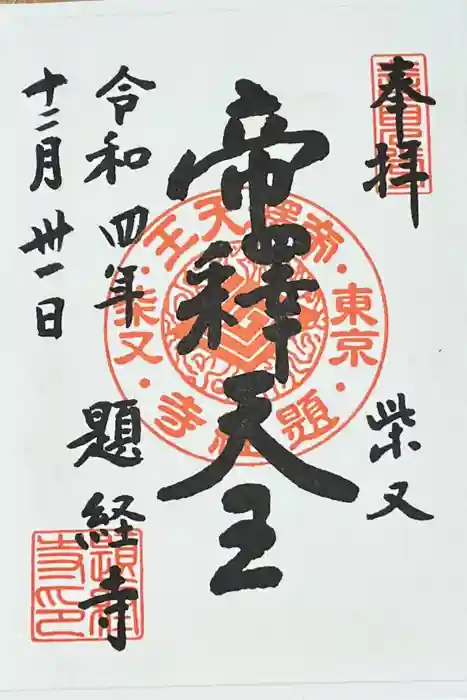 奉拝
柴又
帝釋天王
令和四年
十二月卅一日
題経寺
帝釋天王
東京
柴又
題経寺